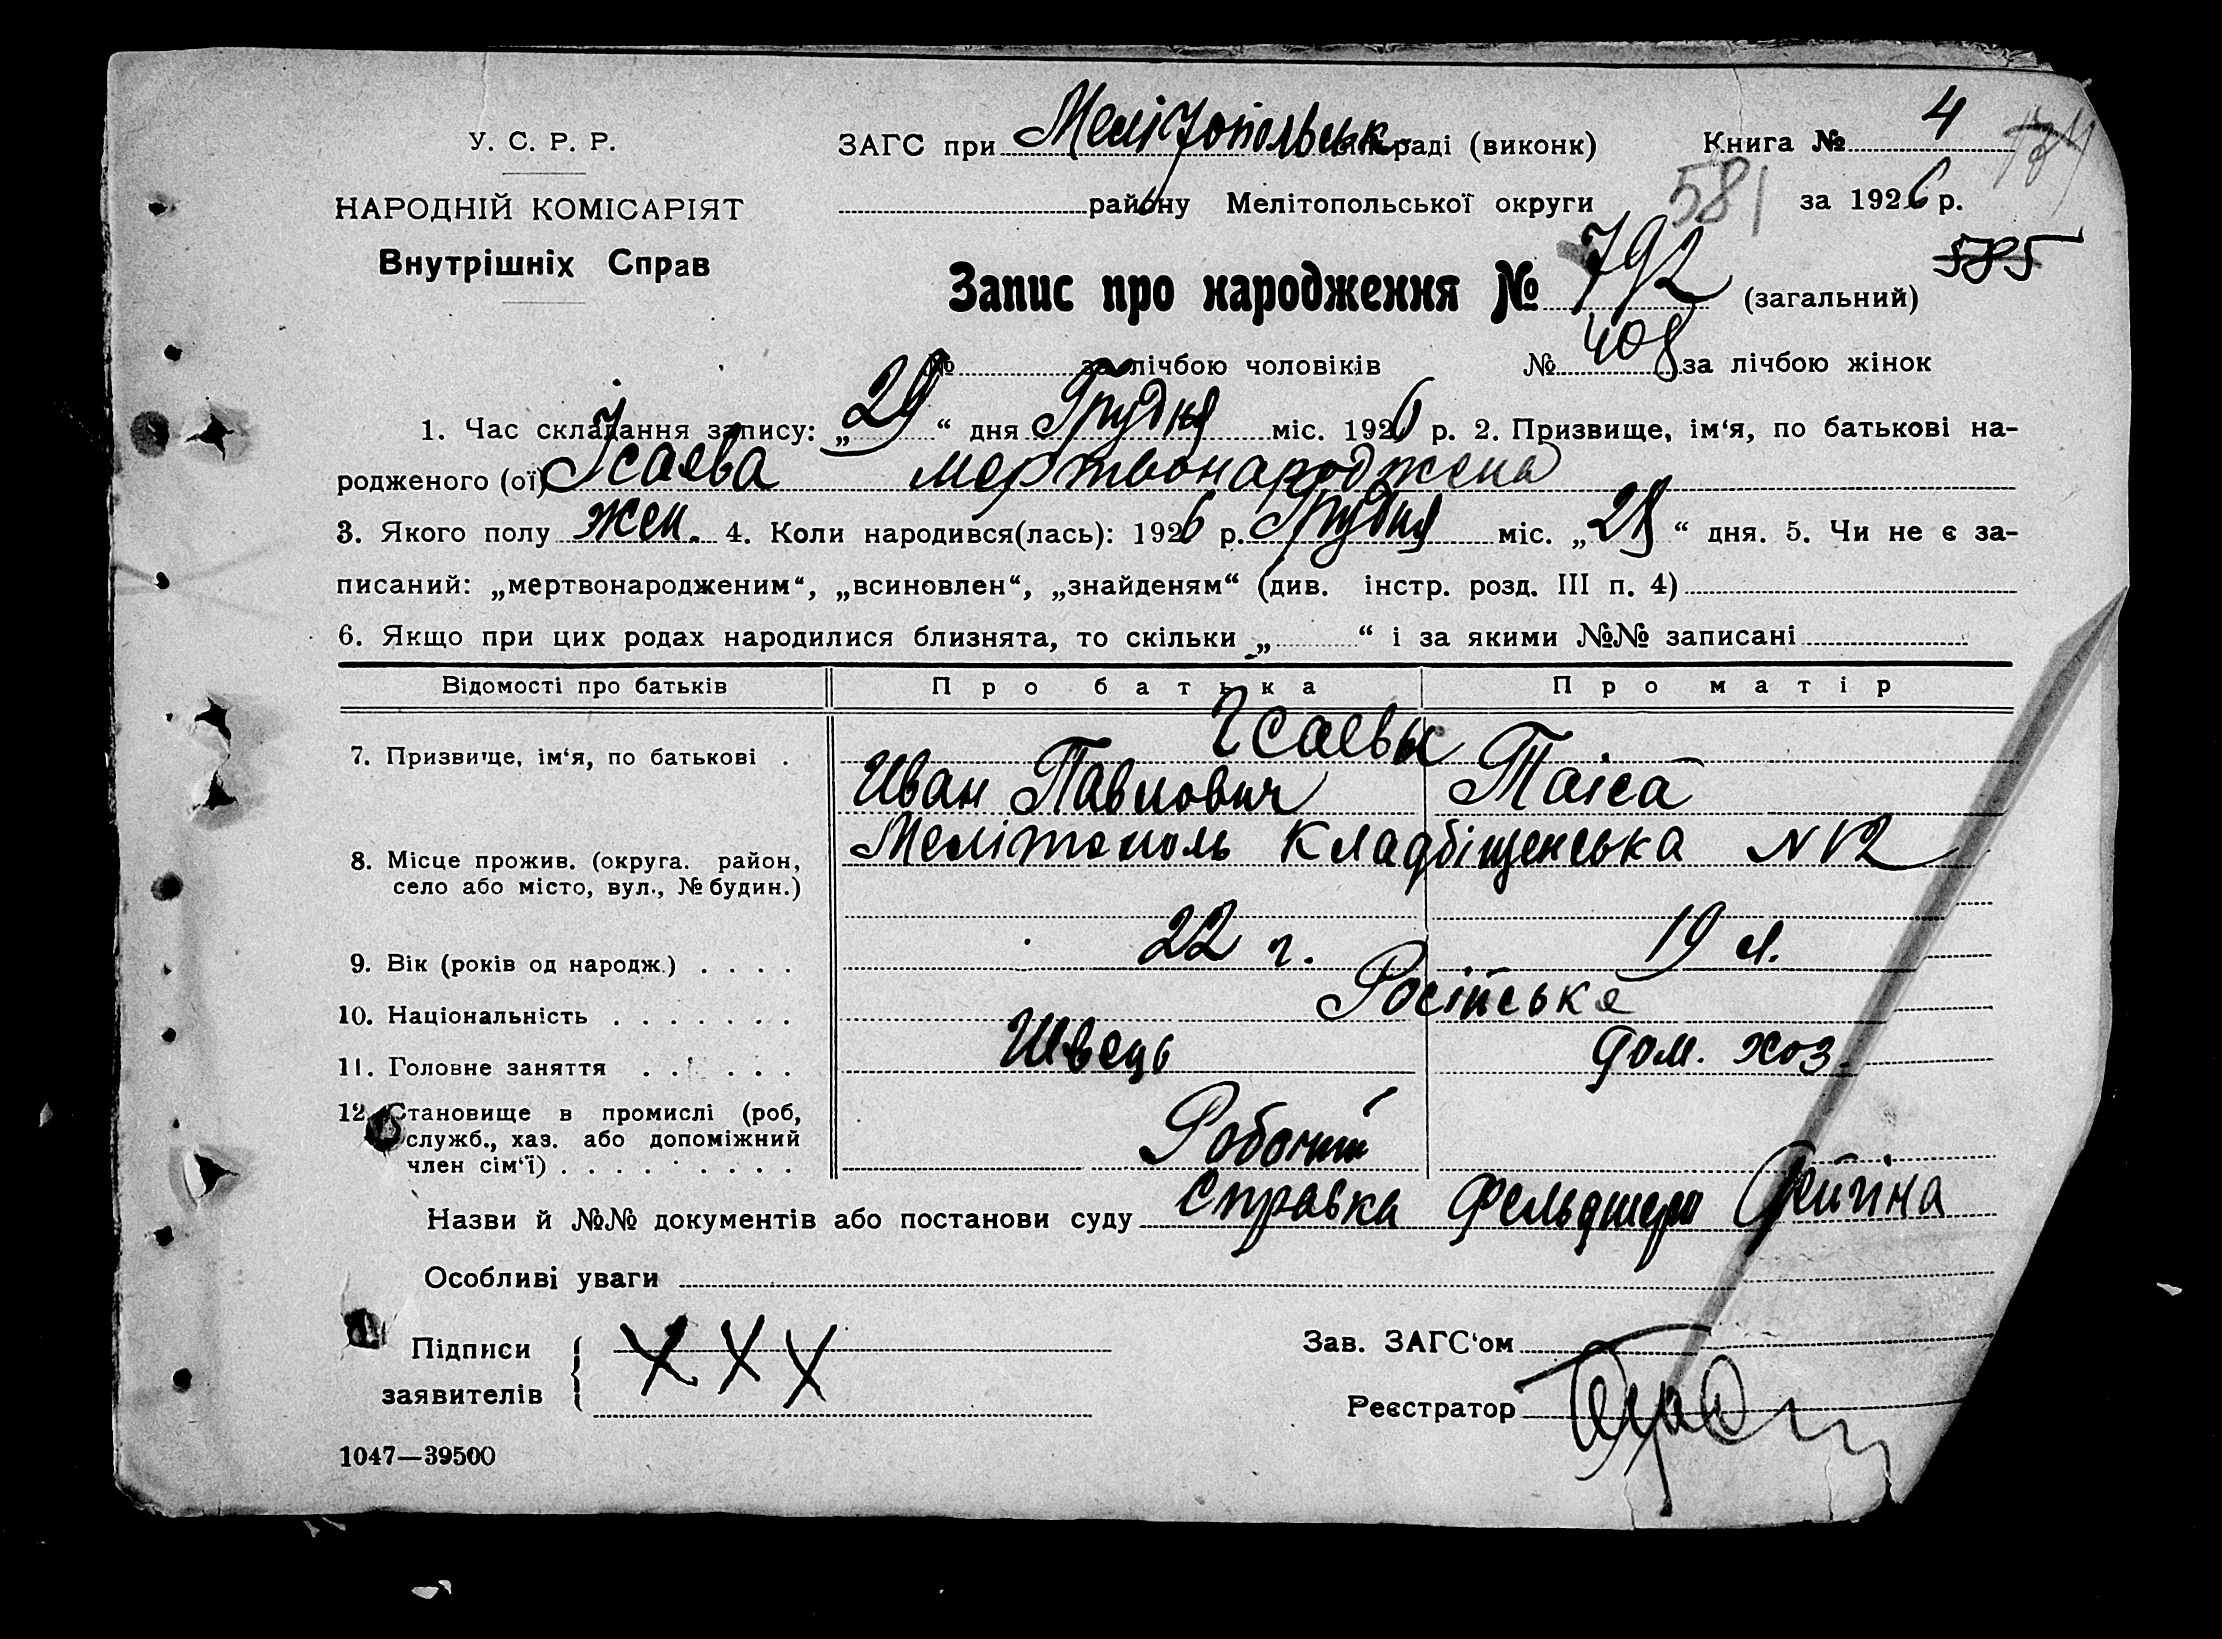 У. С. Р. Р.
НАРОДНІЙ КОМІСАРІЯТ
Внутрішніх Справ
ЗАГС при Мелітопольськ раді (виконк)
Книга № 4
району Мелітопольської округи
581
за 1926 р.
585
Запис про народження № 792 (загальний)
№ за лічбою чоловіків № 408 за лічбою жінок
1. Час складання запису: „29“ дня Грудня міс. 1926 р. 2. Призвище, ім‘я, по батькові на-
родженого (ої) Ісаева мертвонароджена
3. Якого полу жен. 4. Коли народився(лась): 1926 р. Грудня міс. „28“ дня. 5. Чи не є за-
писаний: „мертвонародженим“, „всиновлен“, „знайденям“ (див. інстр. розд. III п. 4)
6. Якщо при цих родах народилися близнята, то скільки „ “ і за якими №№ записані
Відомості про батьків Про батька Про матір
Ісаевы
7. Призвище, ім‘я, по батькові . Иван Павлович Таіса
8. Місце прожив. (округа. район, Мелітополь Кладбіщенська N 12
село або місто, вул., № будин.)
9. Вік (років од народж.) . . . . 22 г. 19 л.
10. Національність . . . . . . . Російська
11. Головне заняття . . . . . . Швець дом. хоз.
12. Становище в промислі (роб,
служб., хаз. або допоміжний
член сім‘ї) . . . . . . . . . Робочий
Назви й №№ документів або постанови суду Справка фельдшера Фейгіна
Особливі уваги
Підписи
заявителів
X X X
Зав. ЗАГС‘ом
Реєстратор
1047—39500